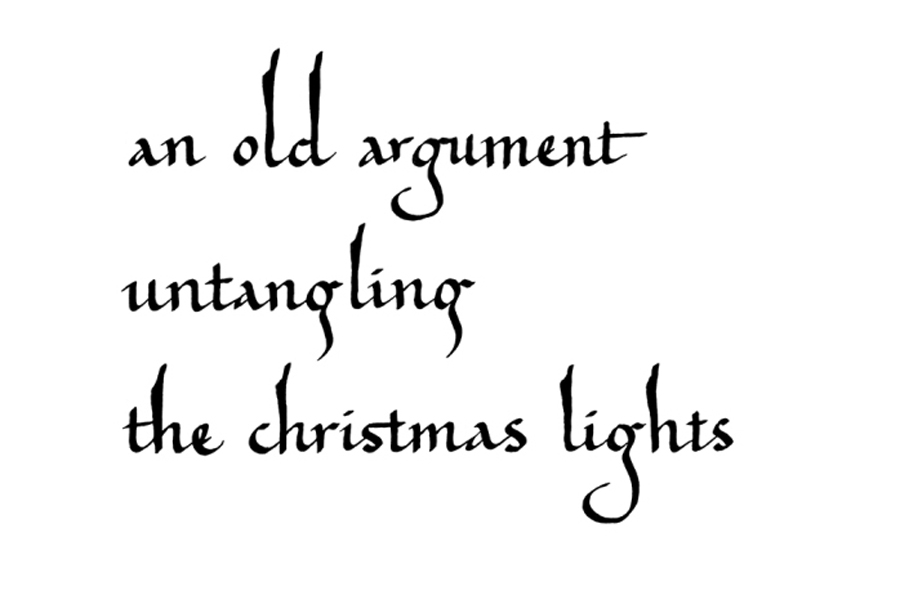 an old argument
untangling
the christmas lights